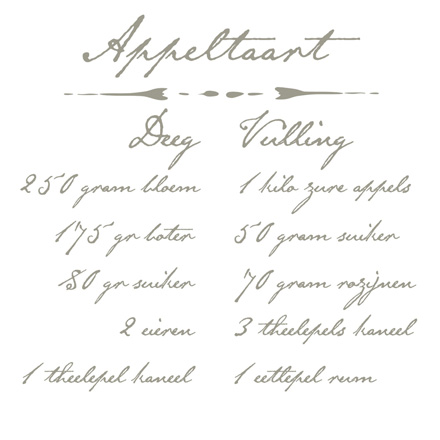 Appeltaart
Deeg
250 gram bloem
175 gr boter
80 gr suiker
2 eieren
1 theelepel kaneel
Vulling
1 kilo zure appels
50 gram suiker
70 gram rozijnen
3 theelepels kaneel
1 eetlepel rum